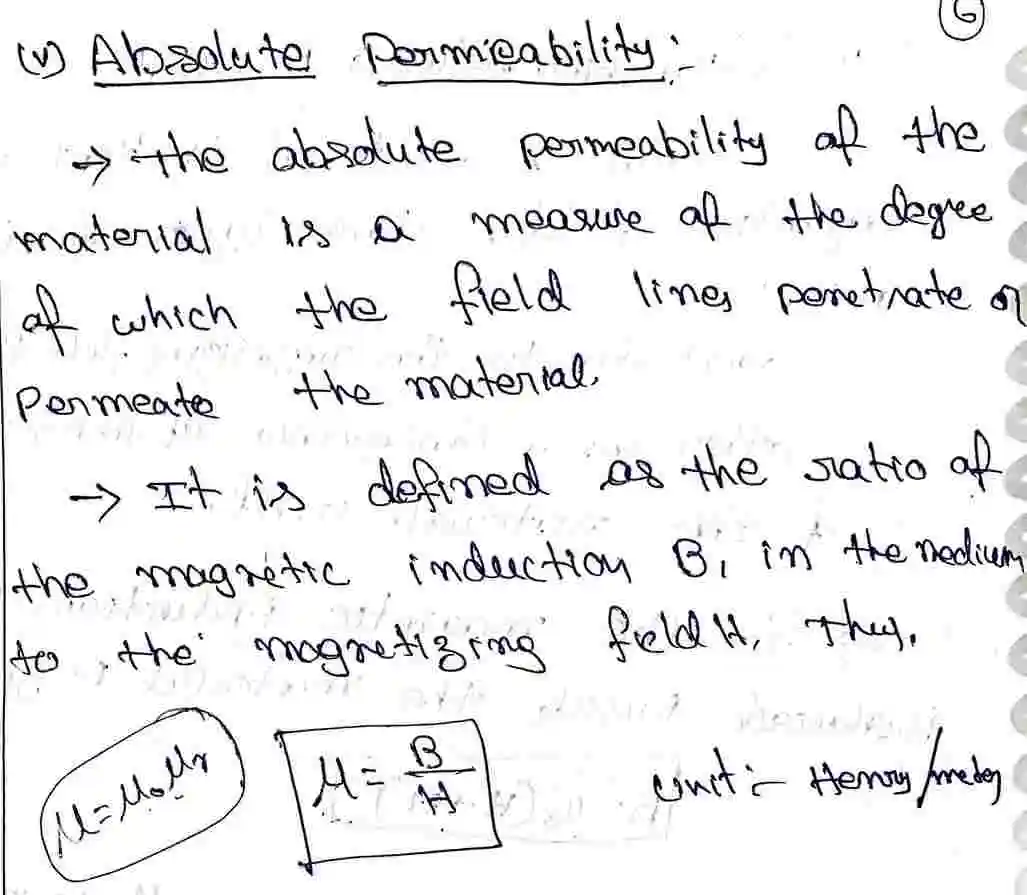 6
(v) Absolute Permieability :-
→ the absolute permeability of the
material is a measure of the degree
of which the field lines penetrate or
Permeate the material.
→ It is defined as the ratio of
the magnetic induction B, in the medium
to the magnetizing field H, Thus,
μ=μ₀μr
μ = B/H
Unit :- Henry/meter